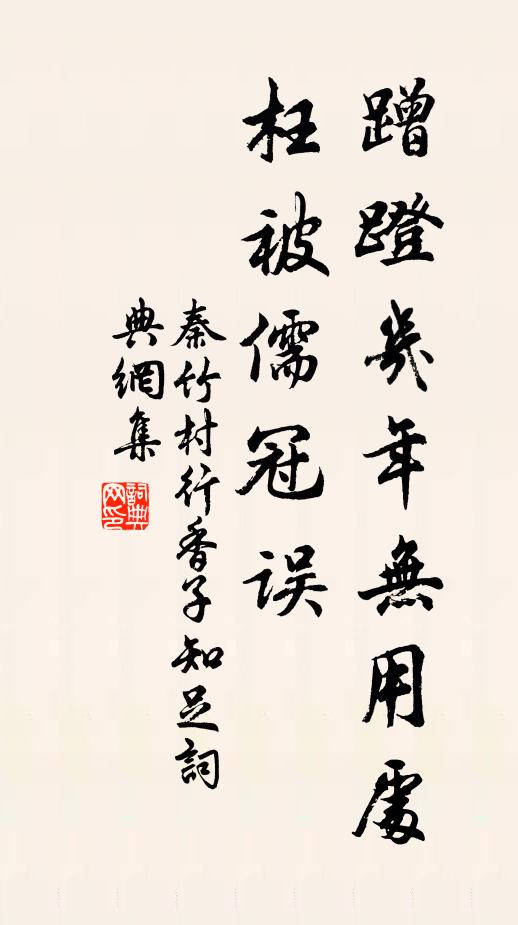 蹭蹬幾年無用處
枉被儒冠误
秦竹村行香子知足詞
典網集
詞典网印